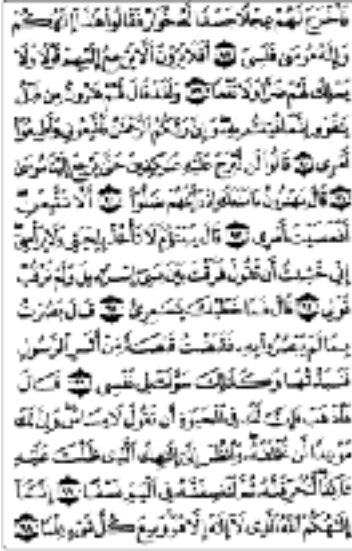 فَأَخْرَجَ لَهُمْ عِجْلًا جَسَدًا لَّهُ خُوَارٌ فَقَالُوا هَٰذَا إِلَٰهُكُمْ
وَإِلَٰهُ مُوسَىٰ فَنَسِيَ ۝٨٨ أَفَلَا يَرَوْنَ أَلَّا يَرْجِعُ إِلَيْهِمْ قَوْلًا وَلَا
يَمْلِكُ لَهُمْ ضَرًّا وَلَا نَفْعًا ۝٨٩ وَلَقَدْ قَالَ لَهُمْ هَارُونُ مِن قَبْلُ
يَا قَوْمِ إِنَّمَا فُتِنتُم بِهِ وَإِنَّ رَبَّكُمُ الرَّحْمَٰنُ فَاتَّبِعُونِي وَأَطِيعُوا
أَمْرِي ۝٩٠ قَالُوا لَن نَّبْرَحَ عَلَيْهِ عَاكِفِينَ حَتَّىٰ يَرْجِعَ إِلَيْنَا مُوسَىٰ
۝٩١ قَالَ يَا هَارُونُ مَا مَنَعَكَ إِذْ رَأَيْتَهُمْ ضَلُّوا ۝٩٢ أَلَّا تَتَّبِعَنِ
أَفَعَصَيْتَ أَمْرِي ۝٩٣ قَالَ يَبْنَؤُمَّ لَا تَأْخُذْ بِلِحْيَتِي وَلَا بِرَأْسِي
إِنِّي خَشِيتُ أَن تَقُولَ فَرَّقْتَ بَيْنَ بَنِي إِسْرَائِيلَ وَلَمْ تَرْقُبْ
قَوْلِي ۝٩٤ قَالَ فَمَا خَطْبُكَ يَا سَامِرِيُّ ۝٩٥ قَالَ بَصُرْتُ
بِمَا لَمْ يَبْصُرُوا بِهِ فَقَبَضْتُ قَبْضَةً مِّنْ أَثَرِ الرَّسُولِ
فَنَبَذْتُهَا وَكَذَٰلِكَ سَوَّلَتْ لِي نَفْسِي ۝٩٦ قَالَ
فَاذْهَبْ فَإِنَّ لَكَ فِي الْحَيَاةِ أَن تَقُولَ لَا مِسَاسَ وَإِنَّ لَكَ
مَوْعِدًا لَّن تُخْلَفَهُ وَانظُرْ إِلَىٰ إِلَٰهِكَ الَّذِي ظَلْتَ عَلَيْهِ
عَاكِفًا لَّنُحَرِّقَنَّهُ ثُمَّ لَنَنسِفَنَّهُ فِي الْيَمِّ نَسْفًا ۝٩٧ إِنَّمَا
إِلَٰهُكُمُ اللَّهُ الَّذِي لَا إِلَٰهَ إِلَّا هُوَ وَسِعَ كُلَّ شَيْءٍ عِلْمًا ۝٩٨